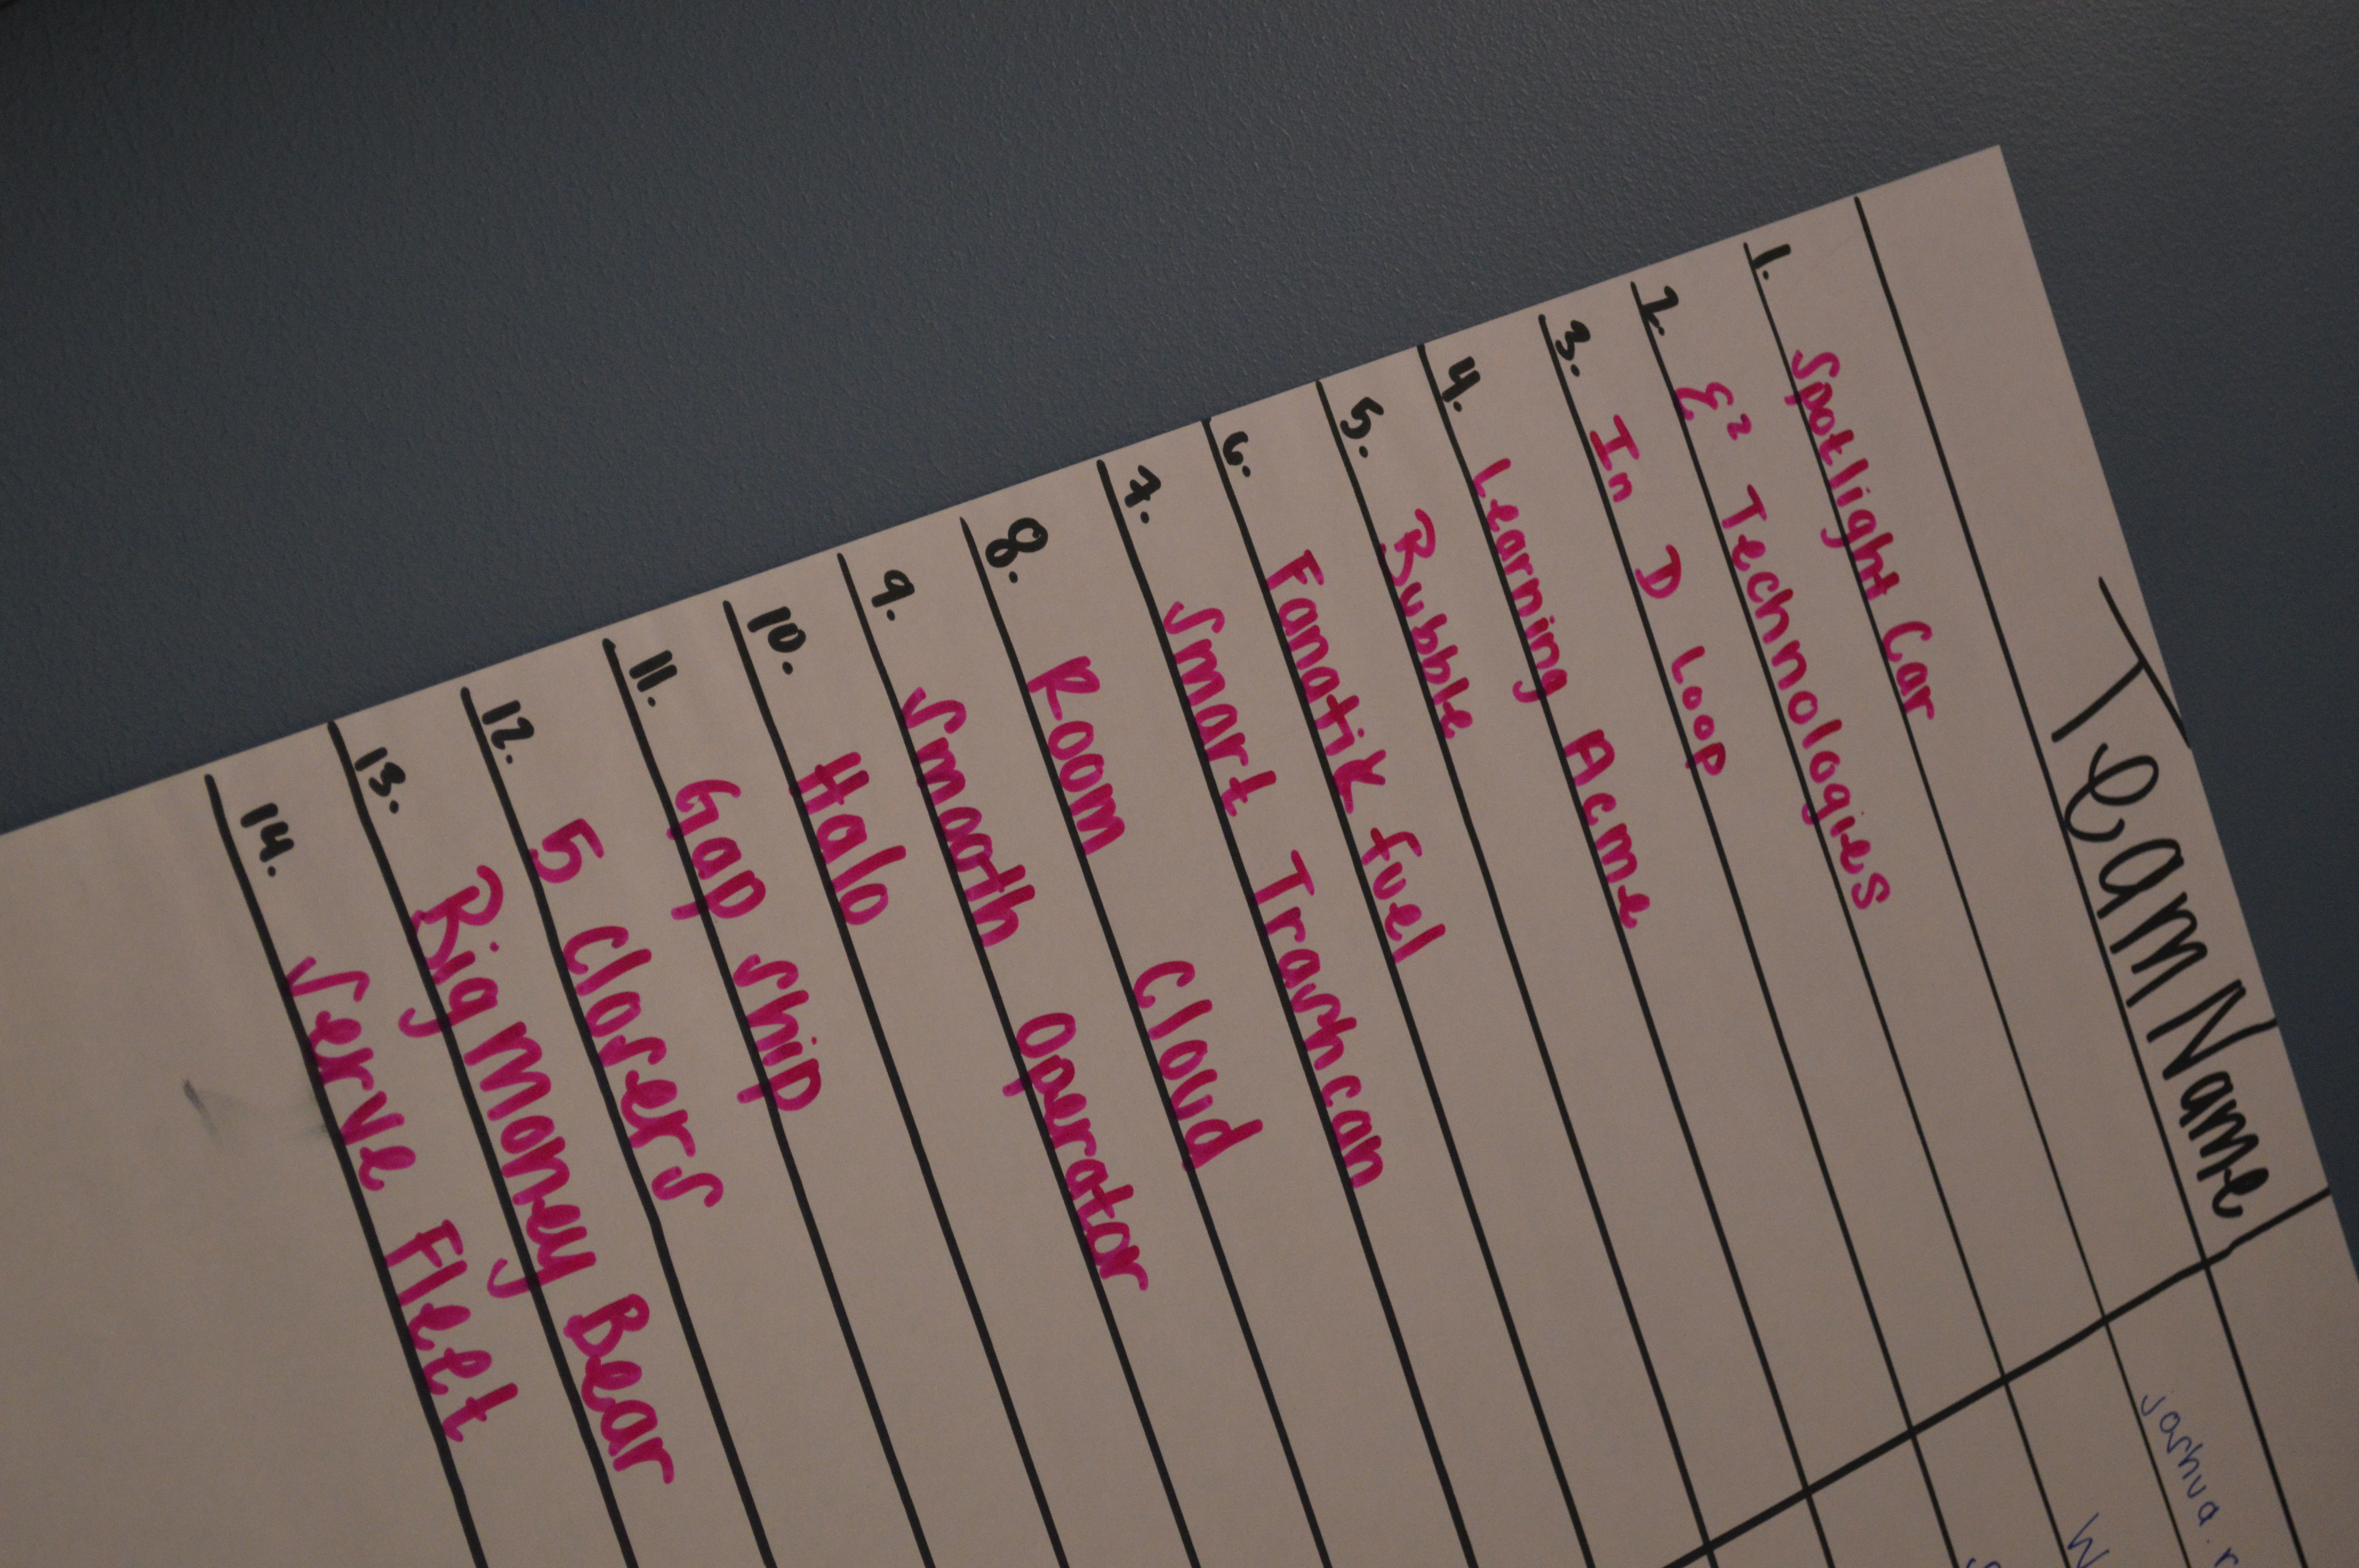 Team Name
1. Spotlight Car
2. E² Technologies
3. In D Loop
4. Learning Acme
5. Bubble
6. Fanatik fuel
7. Smart Trashcan
8. Room Cloud
9. Smooth Operator
10. Halo
11. Gap Ship
12. 5 Closers
13. Big Money Bear
14. Serve Fleet